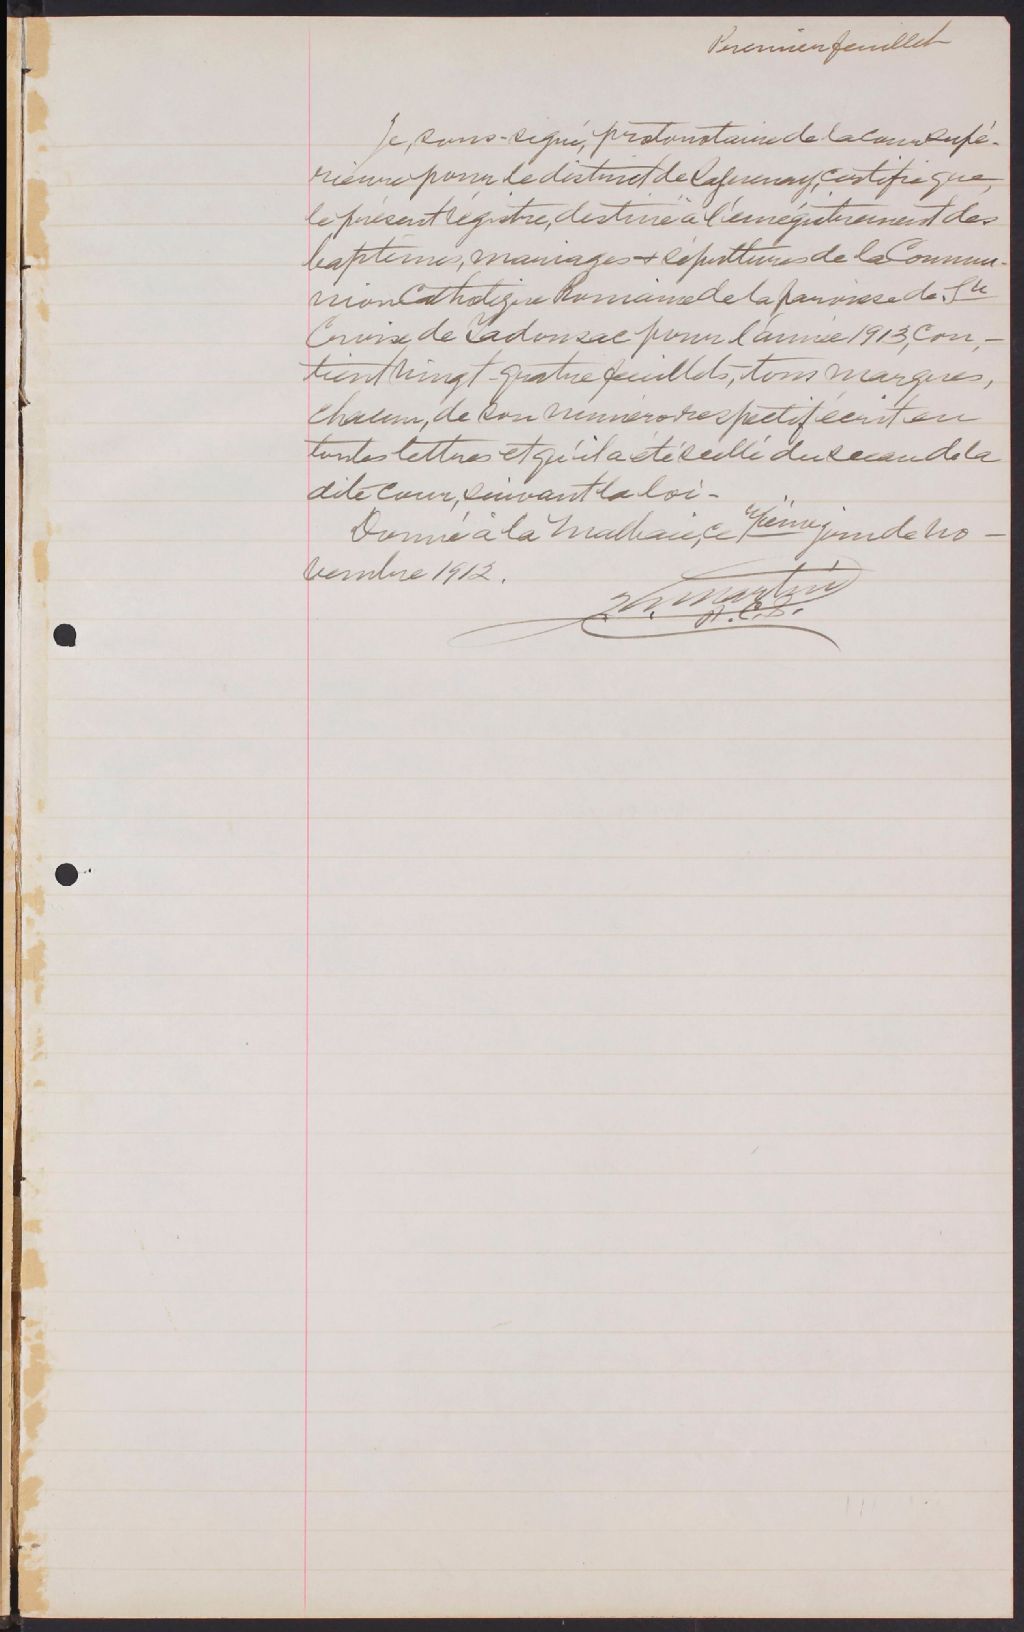 Premier feuillet
Je, sous-signé, protonotaire de la cour supé-
rieure pour le district de Saguenay, certifie que,
le présent régistre, destiné à l'enrégistrement des
baptêmes, mariages & sépultures de la Commu-
nion Catholique Romaine de la paroisse de Ste
Croix de Tadousac pour l'année 1913, con,-
tient vingt-quatre feuillets, tous marqués,
chacun, de son numéro respectif écrit en
toutes lettres et qu'il a été scellé du sceau de la
dite cour, suivant la loi-
Donné à la Malbaie, ce jour de no-
vembre 1912.
Martin